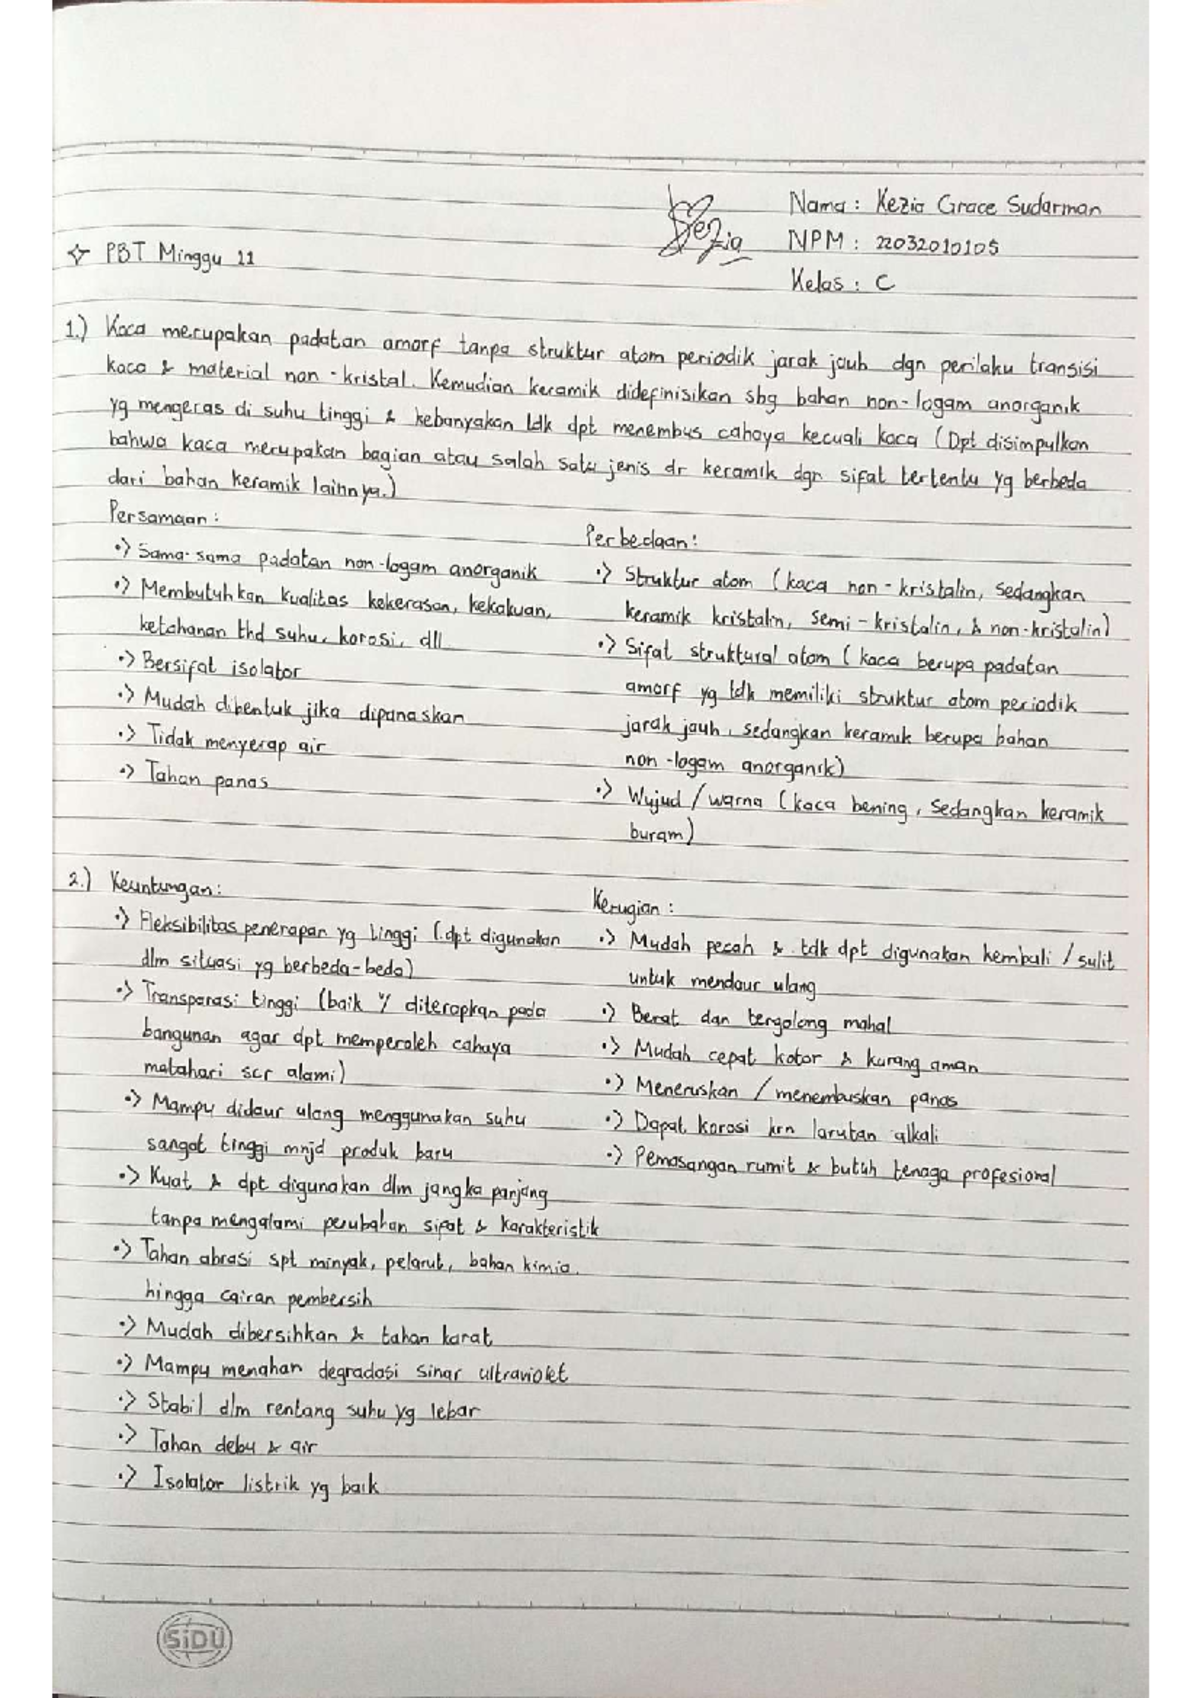 Nama : Kezia Grace Sudarman
Kezia
NPM : 22032010105
☆ PBT Minggu 11
Kelas : C
1.) Kaca merupakan padatan amorf tanpa struktur atom periodik jarak jauh dgn perilaku transisi
kaca & material non-kristal. Kemudian keramik didefinisikan sbg bahan non-logam anorganik
yg mengeras di suhu tinggi & kebanyakan tdk dpt menembus cahaya kecuali kaca (Dpt disimpulkan
bahwa kaca merupakan bagian atau salah satu jenis dr keramik dgn sifat tertentu yg berbeda
dari bahan keramik lainnya.)
Persamaan :
•> Sama-sama padatan non-logam anorganik
•> Membutuhkan kualitas kekerasan, kekakuan,
ketahanan thd suhu, korosi, dll
•> Bersifat isolator
•> Mudah dibentuk jika dipanaskan
•> Tidak menyerap air
•> Tahan panas
Perbedaan :
•> Struktur atom (kaca non-kristalin, sedangkan
keramik kristalin, semi-kristalin, & non-kristalin)
•> Sifat struktural atom (kaca berupa padatan
amorf yg tdk memiliki struktur atom periodik
jarak jauh, sedangkan keramik berupa bahan
non-logam anorganik)
•> Wujud / warna (kaca bening, sedangkan keramik
buram)
2.) Keuntungan :
•> Fleksibilitas penerapan yg tinggi (dpt digunakan
dlm situasi yg berbeda-beda)
•> Transparasi tinggi (baik u/ diterapkan pada
bangunan agar dpt memperoleh cahaya
matahari scr alami)
•> Mampu didaur ulang menggunakan suhu
sangat tinggi mnjd produk baru
•> Kuat & dpt digunakan dlm jangka panjang
tanpa mengalami perubahan sifat & karakteristik
•> Tahan abrasi spt minyak, pelarut, bahan kimia,
hingga cairan pembersih
•> Mudah dibersihkan & tahan karat
•> Mampu menahan degradasi sinar ultraviolet
•> Stabil dlm rentang suhu yg lebar
•> Tahan debu & air
•> Isolator listrik yg baik
Kerugian :
•> Mudah pecah & tdk dpt digunakan kembali / sulit
untuk mendaur ulang
•> Berat dan tergolong mahal
•> Mudah cepat kotor & kurang aman
•> Meneruskan / menembuskan panas
•> Dapat korosi krn larutan alkali
•> Pemasangan rumit & butuh tenaga profesional
SiDU